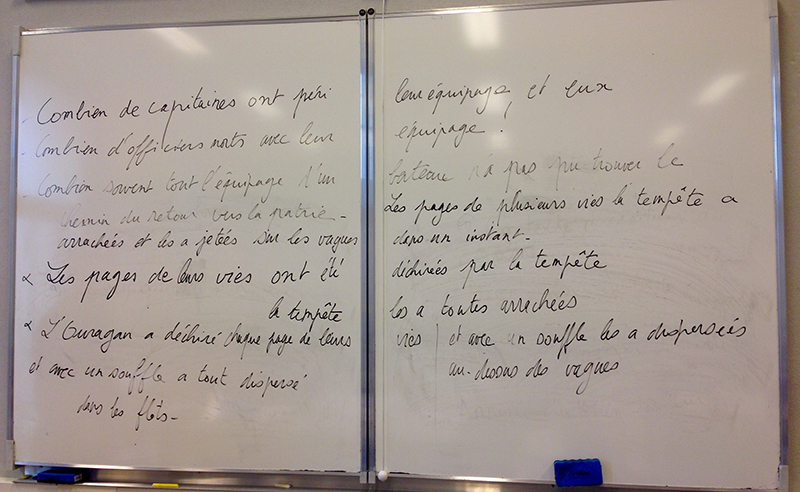 - Combien de capitaines ont péri
- Combien d'officiers morts avec leur
- Combien souvent tout l'équipage d'un
chemin du retour vers la patrie -
arrachées et les a jetées sur les vagues
∝ Les pages de leurs vies ont été
la tempête
∝ L'Ouragan a déchiré chaque page de leurs
et avec un souffle a tout dispersé
dans les flots -
leur équipage, et eux
équipage !
bateau n'a pas pu trouver le
Les pages de plusieurs vies la tempête a
dans un instant -
déchirées par la tempête
les a toutes arrachées
vies | et avec un souffle les a dispersées
au-dessus des vagues